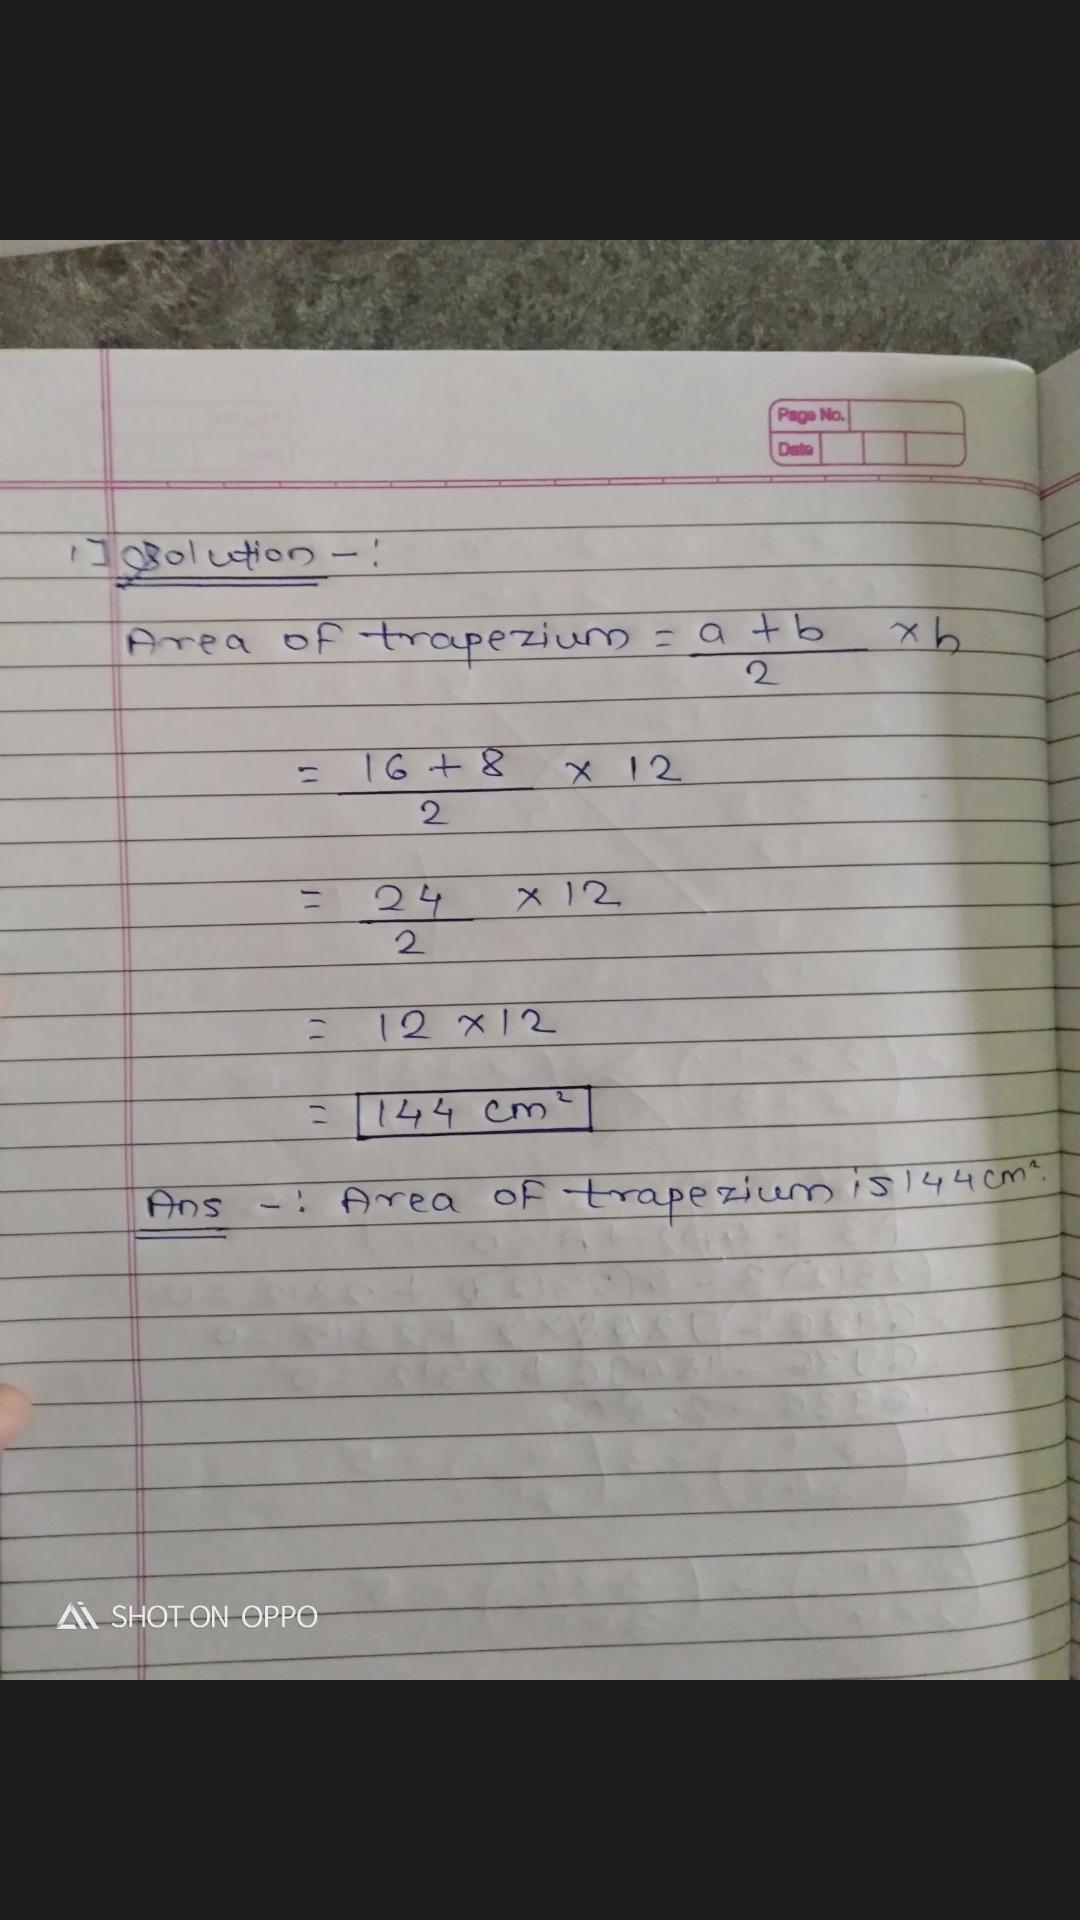 Page No.
Date
1] Solution -:
Area of trapezium = a + b / 2 × h
= 16 + 8 / 2 × 12
= 24 / 2 × 12
= 12 × 12
= 144 cm²
Ans -: Area of trapezium is 144 cm².
SHOT ON OPPO